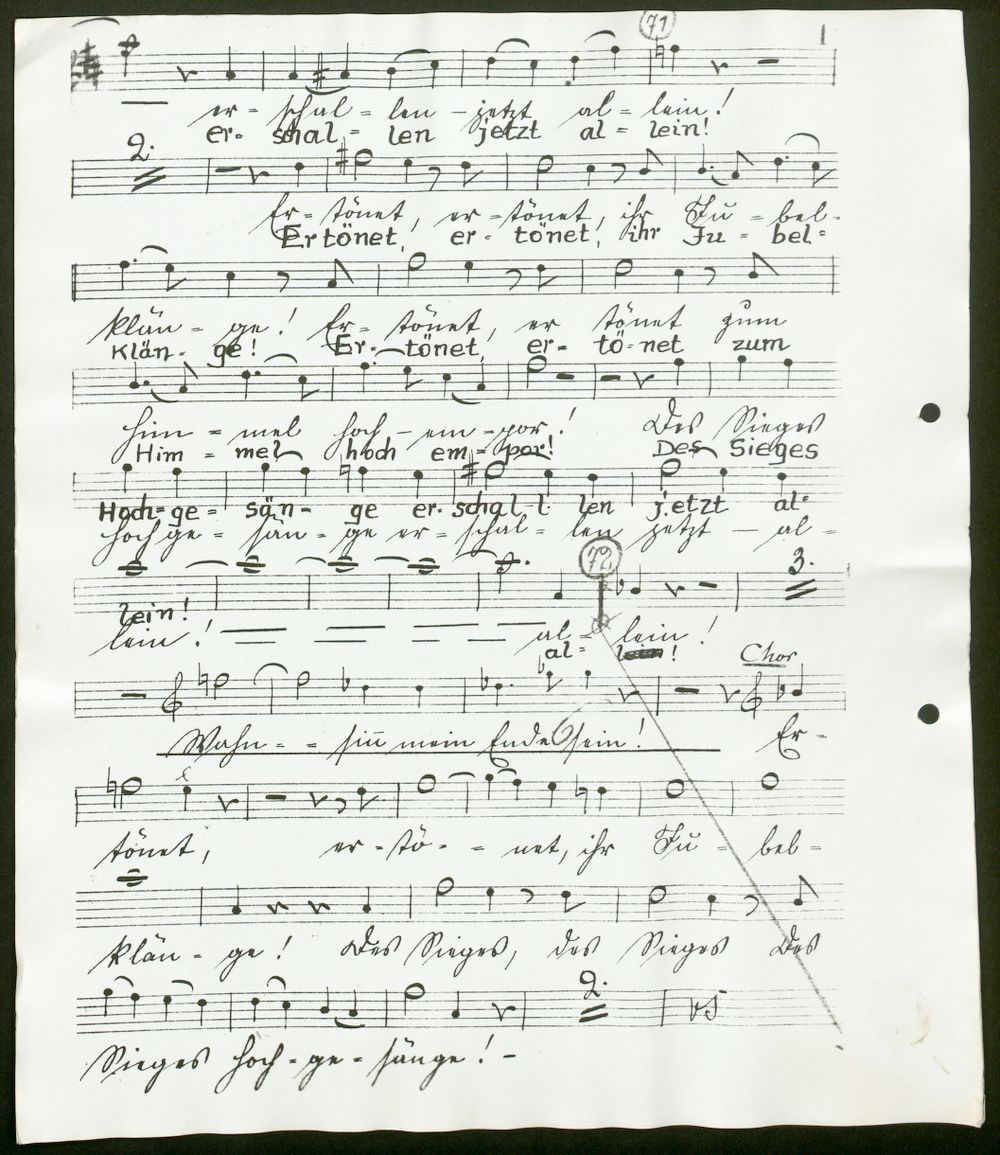 71
er- schal- len - jetzt al- lein!
er- schal- len jetzt al- lein!
2.
Er- tönet, er- tönet, ihr Ju- bel-
Ertönet, er- tönet, ihr Ju- bel-
klän- ge! Er- tönet, er tönet zum
Klän- ge! Er- tönet, er- tö- net zum
Him- mel hoch- em- por! Des Sieges
Him- mel hoch em- por! Des Sieges
Hoch- ge- sän- ge er- schal- l- len jetzt al-
Hoch ge- sän- ge er- schal- len jetzt - al-
72.
3.
lein!
lein! al- lein!
al- lein!
Chor
Wahn- - sinn mein Ende sein! Er-
tönet, er- tö- - net, ihr Ju- bel-
klän- ge! Des Sieges, des Sieges Des
2.
VS
Sieges Hoch- ge- sänge! -